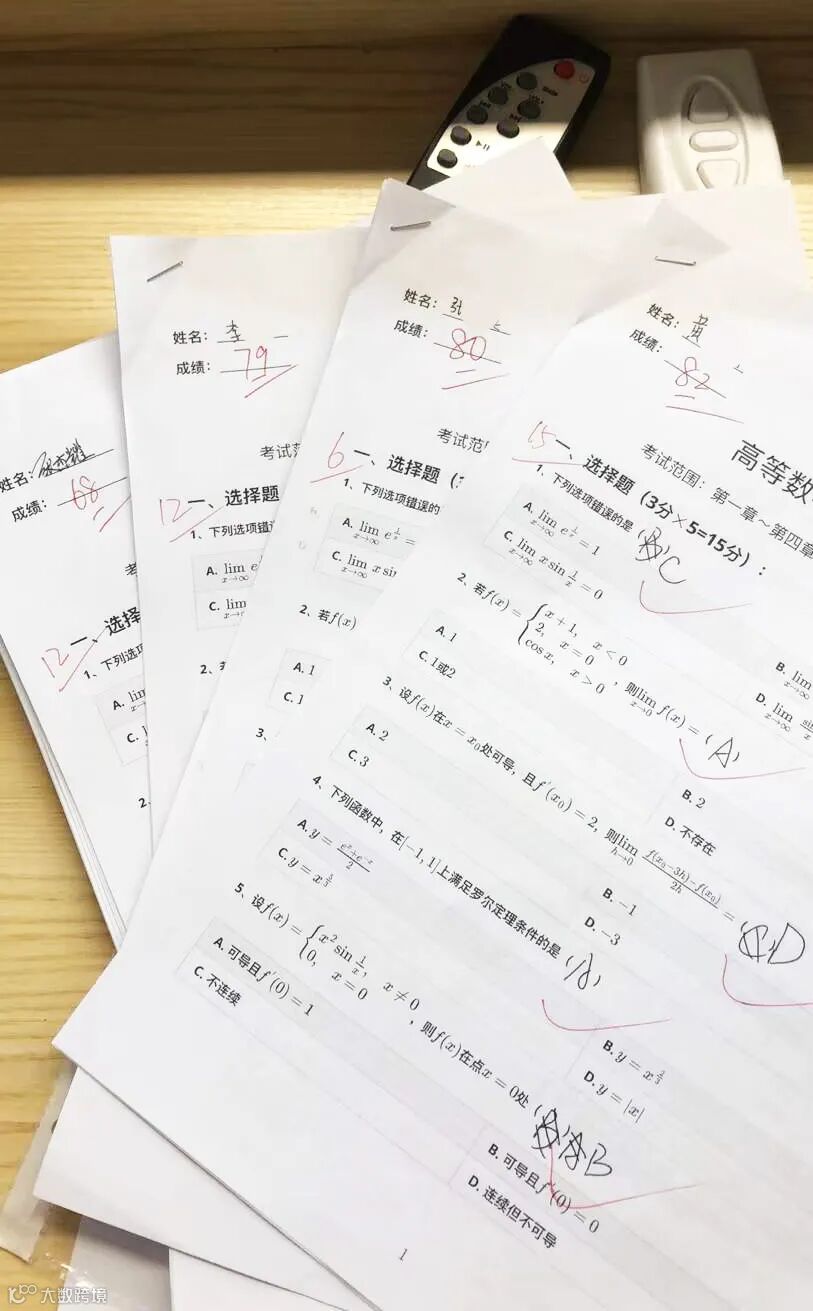 姓名：
成绩：68
12 一、选择
1、下列选项
A. lim
C. l
2、
姓名：李 一
成绩：79
考试范
12 一、选择题
1、下列选项错误
A. lim x→∞ e
C. lim
2、若
姓名：张
成绩：80
考试范围
6 一、选择题（
1、下列选项错误的
A. lim x→∞ e^{1/x} =
C. lim x→∞ x sin
2、若f(x)
A. 1
C. 1
3、
姓名：
成绩：82
高等数
考试范围：第一章～第四章
15 一、选择题（3分×5=15分）：
1、下列选项错误的是（ ）C
A. lim x→∞ e^{1/x} = 1
B. lim x→∞
C. lim x→∞ x sin 1/x = 0
D. lim x→∞ sin x
2、若f(x) = { x+1, x<0 2, x=0 cos x, x>0 ，则lim x→0 f(x) =（A）
A. 1
B. 2
C. 1或2
D. 不存在
3、设f(x)在x = x₀处可导，且f′(x₀) = 2，则lim h→0 f(x₀−3h)−f(x₀) / 2h =（ ）D
A. 2
B. −1
C. 3
D. −3
4、下列函数中，在[−1, 1]上满足罗尔定理条件的是（A）
A. y = (e^x+e^{−x})/2
B. y = x^{2/3}
C. y = x^{5/3}
D. y = |x|
5、设f(x) = { x² sin 1/x, x ≠ 0 0, x = 0 ，则f(x)在点x = 0处（ ）B
A. 可导且f′(0) = 1
B. 可导且f′(0) = 0
C. 不连续
D. 连续但不可导
1
大数跨境